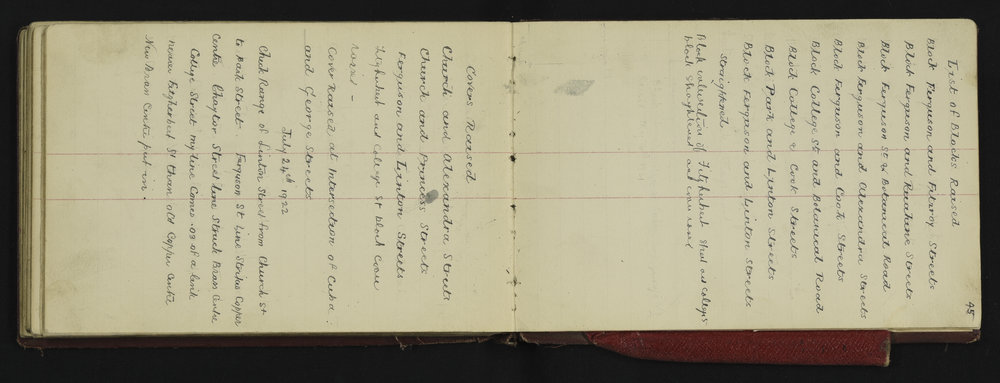 45
List of Blocks Raised
Block Ferguson and Fitzroy Streets
Block Ferguson and Ruahine Streets
Block Ferguson St & Botanical Road
Block Ferguson and Alexandra Streets
Block Ferguson and Cook Streets
Block College St and Botanical Road
Block College & Cook Streets
Block Park and Linton Streets
Block Ferguson and Linton Streets
Straightened
Block intersection of Fitzherbert Street and College St
block straightened and cover raised
Covers Raised
Church and Alexandra Streets
Church and Princess Streets
Ferguson and Linton Streets
Fitzherbert and College St block Cover
raised –
Cover Raised at Intersection of Cuba
and George Streets
July 24th 1922
Chck Range of Linton Street from Church St
to Park Street Ferguson St line Strikes Copper
Centre Chaytor Street line Struck Brass Centre
College Street my line Comes .03 of a link
nearer Fitzherbert St than old Copper Centre
New Brass Centre put in.